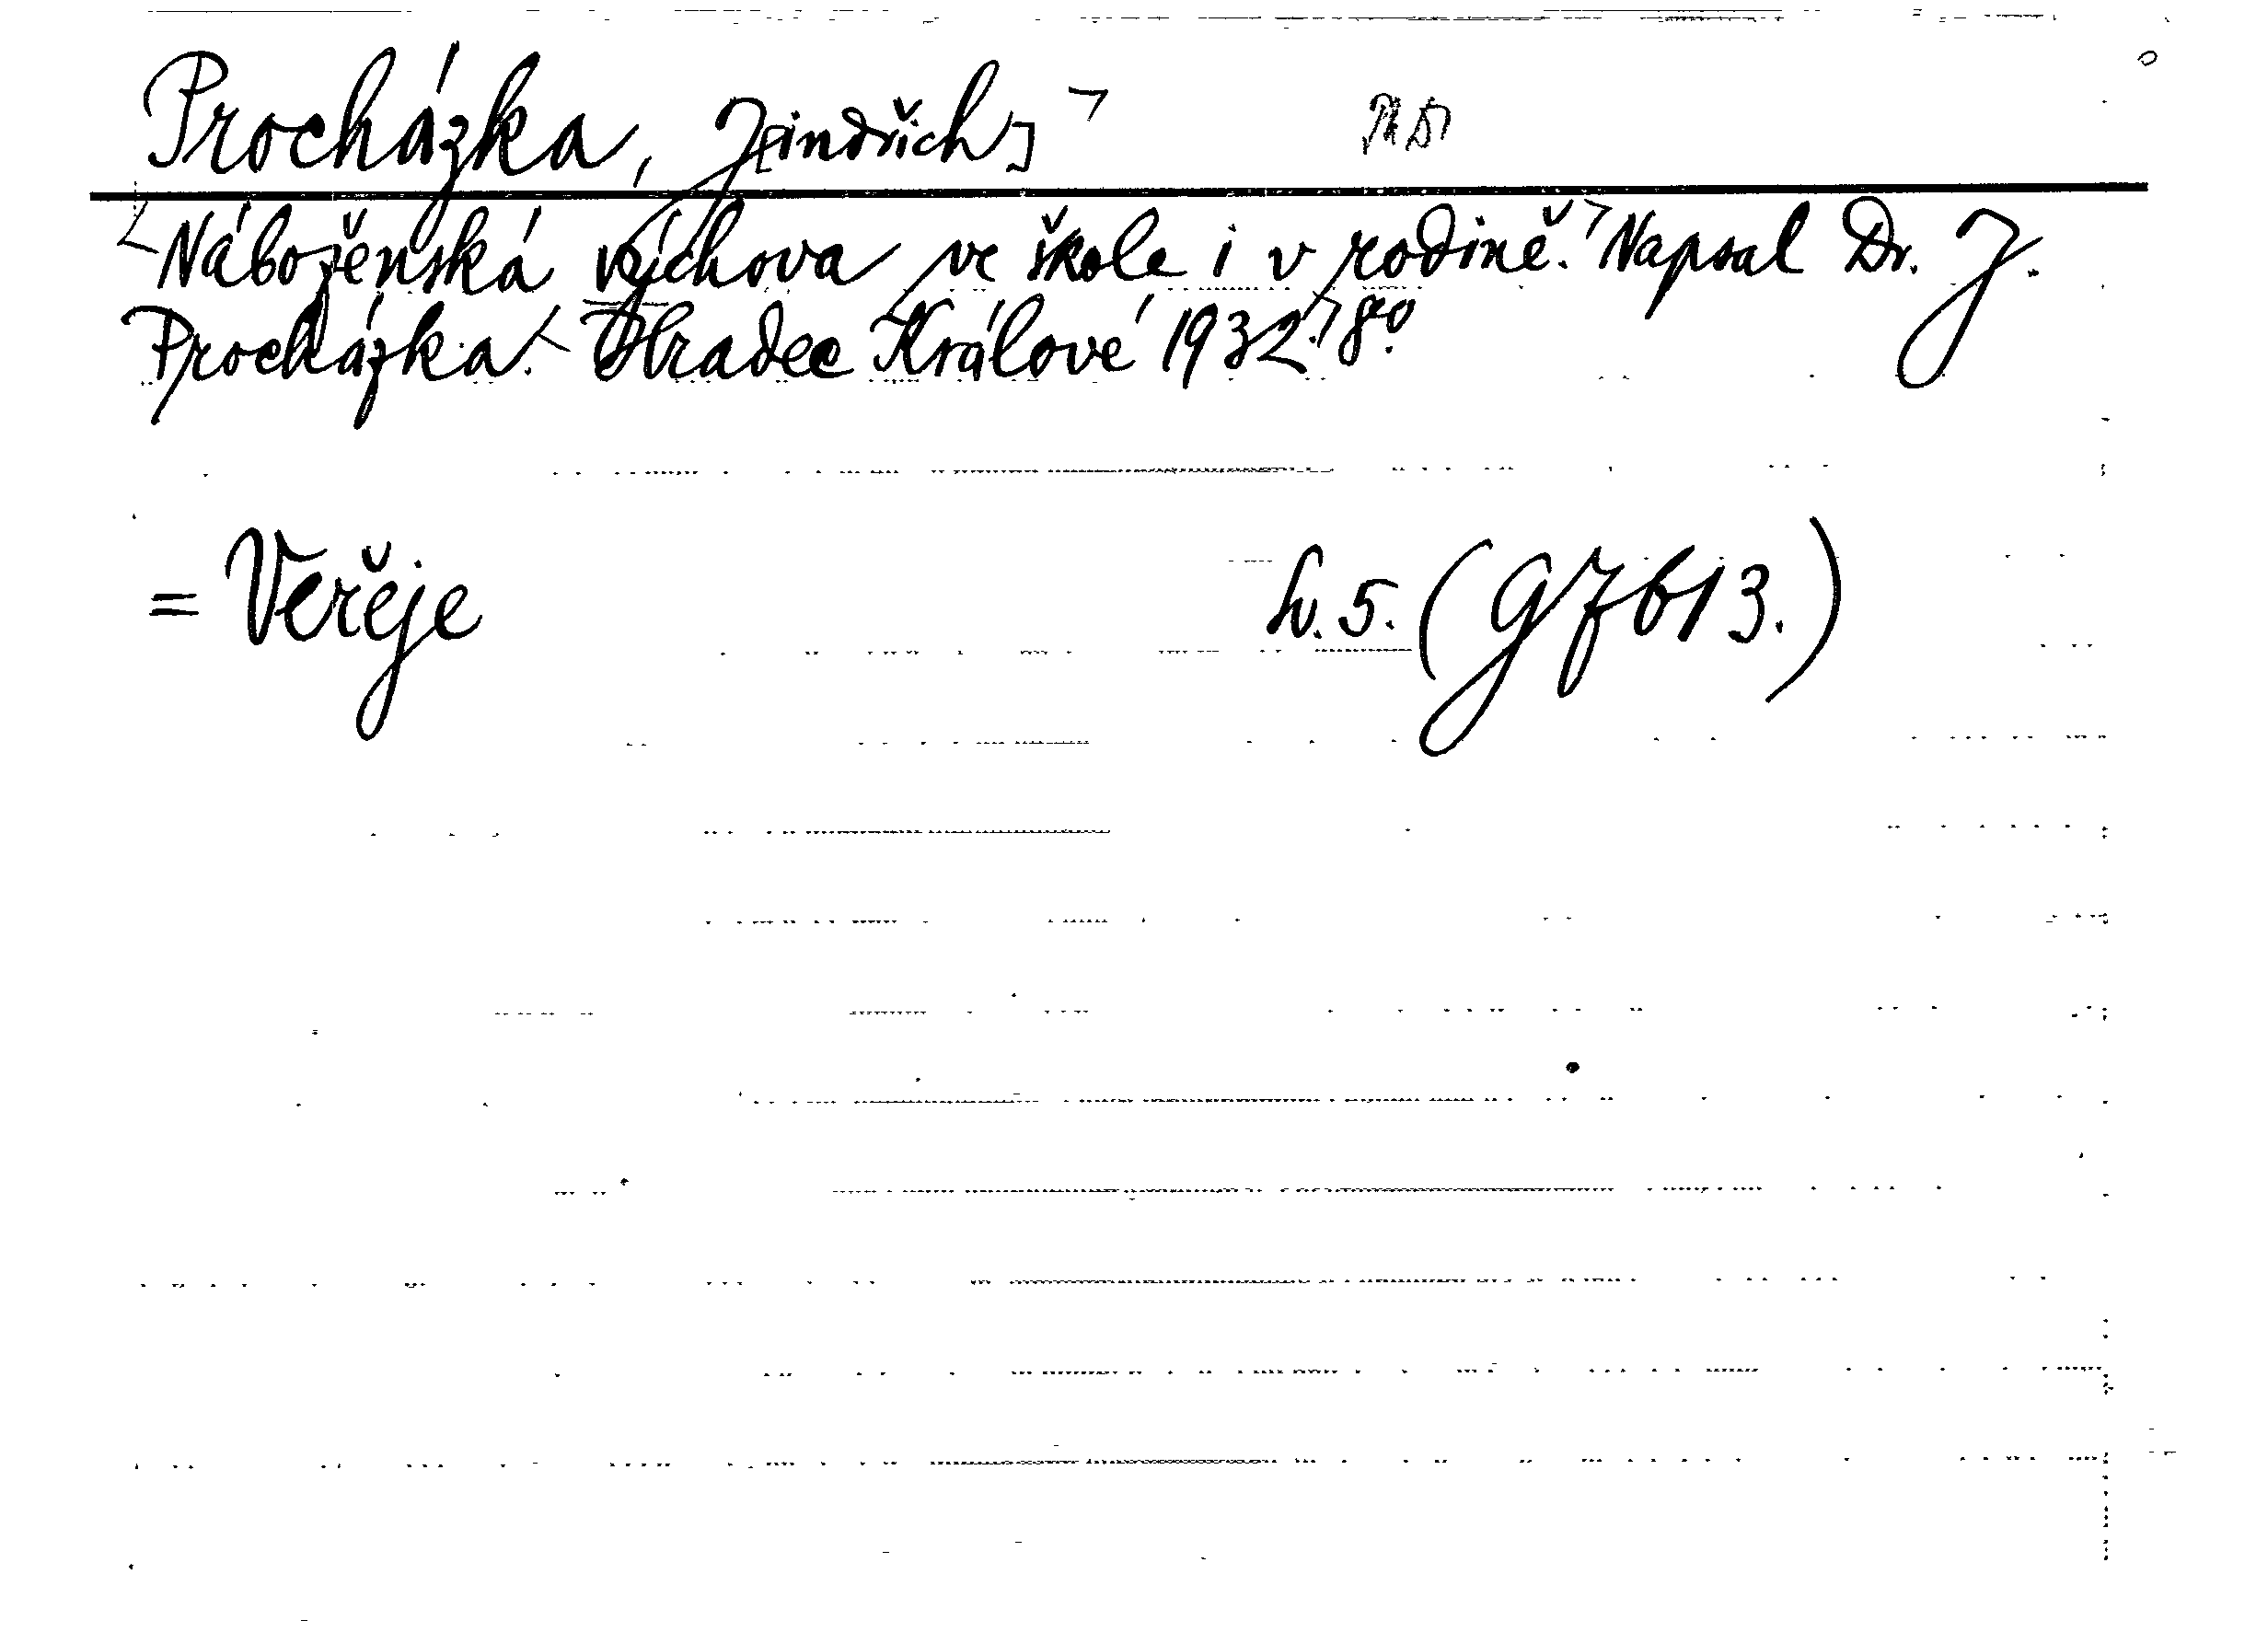 Procházka, J[indřich]
Náboženská výchova ve škole i v rodině. Napsal Dr. J.
Procházka. Hradec Králové 1932. 8º
= Veřeje Sv. 5. (